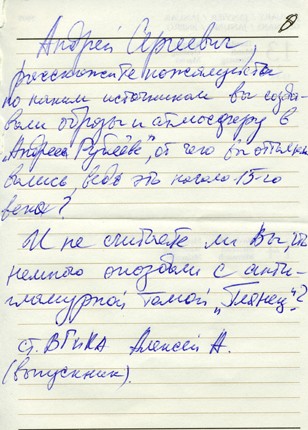 8
Андрей Сергеевич,
расскажите пожалуйста
по каким источникам вы созда-
вали образы и атмосферу в
„Андрее Рублёве", от чего вы отталки-
вались, ведь это начало 15-го
века?
И не считаете ли Вы, что
немного опоздали с анти-
гламурной темой „Глянец"?
ст. ВГИКА Алексей А.
(выпускник).